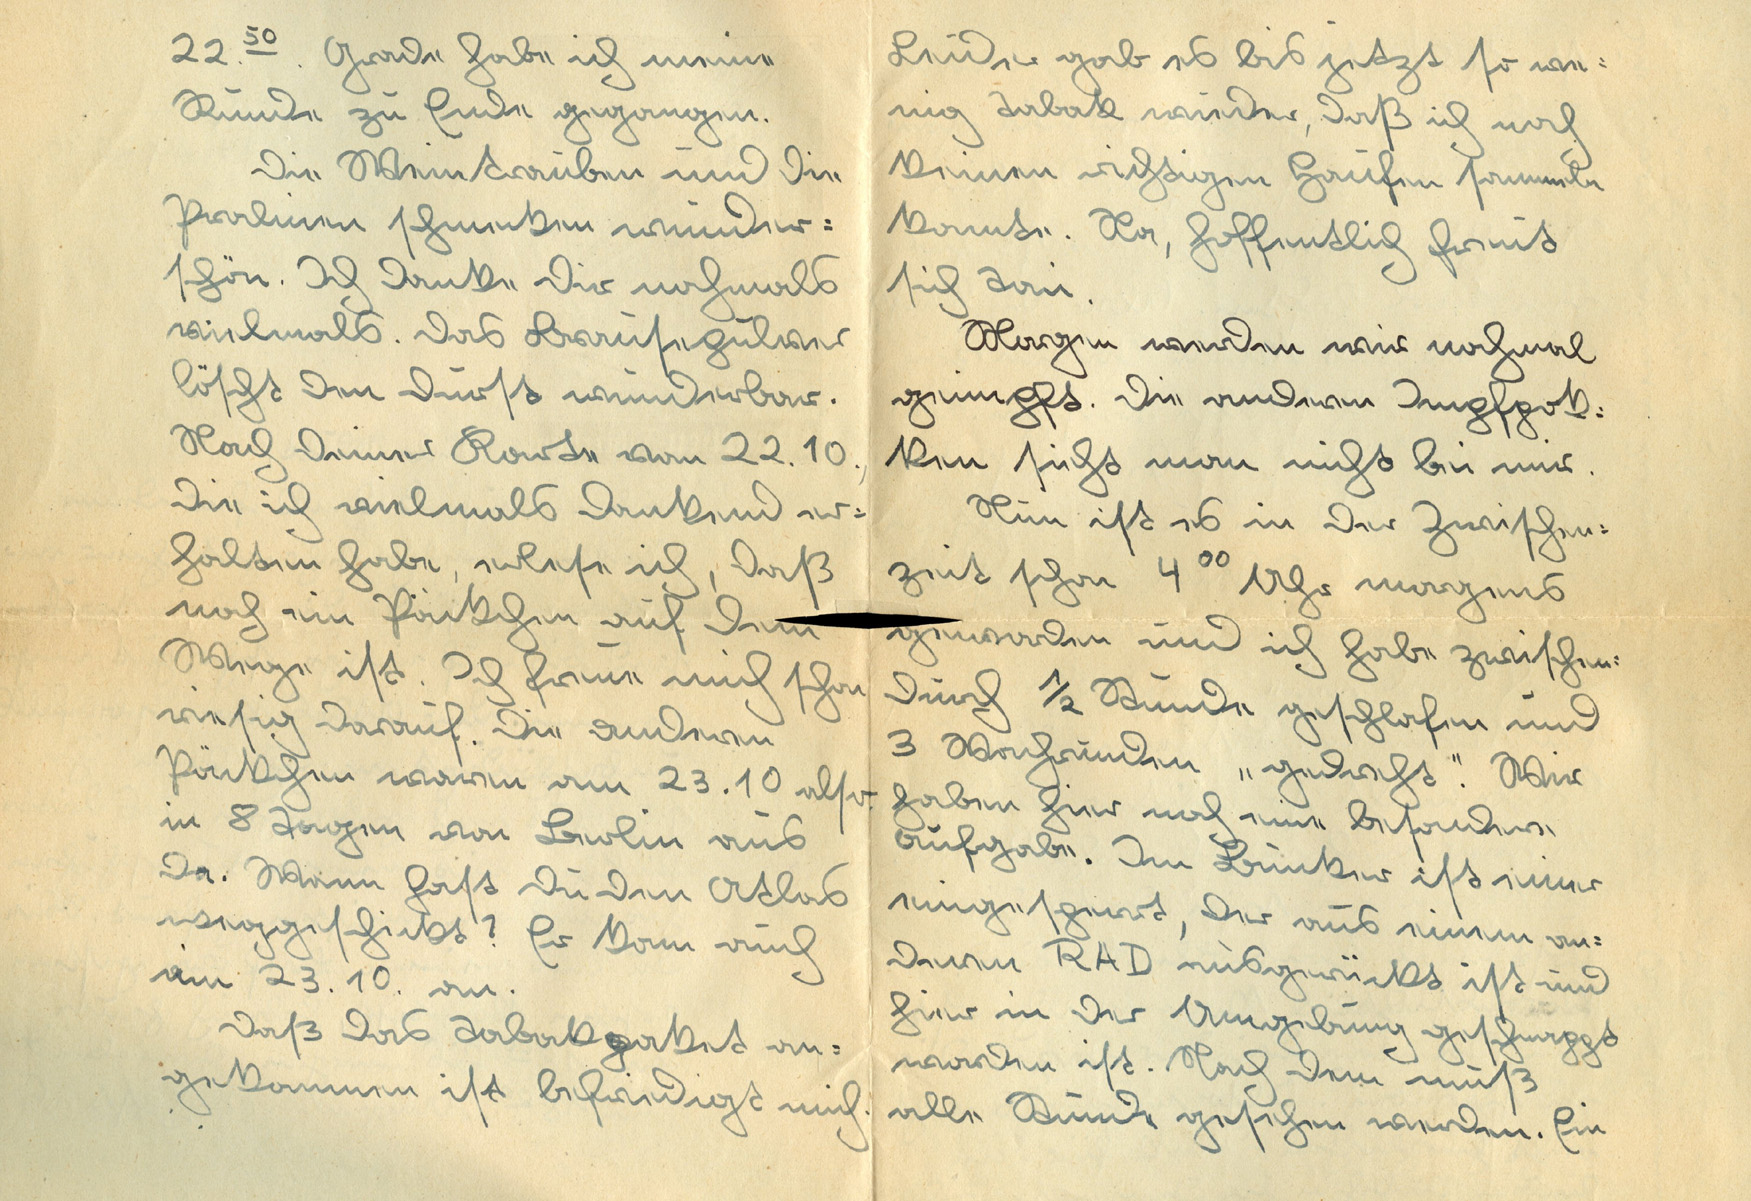 22.50. Grade habe ich meine
Runde zu Ende gegangen.
Die Weintrauben und die
Pralinen schmecken wunder=
schön. Ich danke Dir nochmals
vielmals. Das Brausepulver
löscht den Durst wunderbar.
Nach Deiner Karte vom 22.10.,
die ich vielmals dankend er=
halten habe, erlese ich, daß
noch ein Päckchen auf dem
Wege ist. Ich freue mich schon
riesig darauf. Die anderen
Päckchen waren am 23.10 also
in 8 Tagen von Berlin aus
da. Wann hast Du den Atlas
weggeschickt? Er kam auch
am 23.10. an.
Daß das Tabakpaket an=
gekommen ist befriedigt mich.
Leider gab es bis jetzt so we=
nig Tabak wieder, daß ich noch
keinen richtigen Haufen sammeln
konnte. Na, hoffentlich freut
sich
Morgen werden wir nochmal
geimpft. Die anderen Impfpok=
ken sieht man nicht bei mir.
Nun ist es in der Zwischen=
zeit schon 4 00 Uhr morgens
geworden und ich habe zwischen=
durch 1/2 Stunde geschlafen und
3 Wachrunden „gedreht". Wir
haben hier noch eine besondere
Aufgabe. Im Bunker ist einer
eingesperrt, der aus einem an=
deren RAD ausgerückt ist und
hier in der Umgebung geschnappt
worden ist. Nach dem muß
alle Stunde gesehen werden. Ein